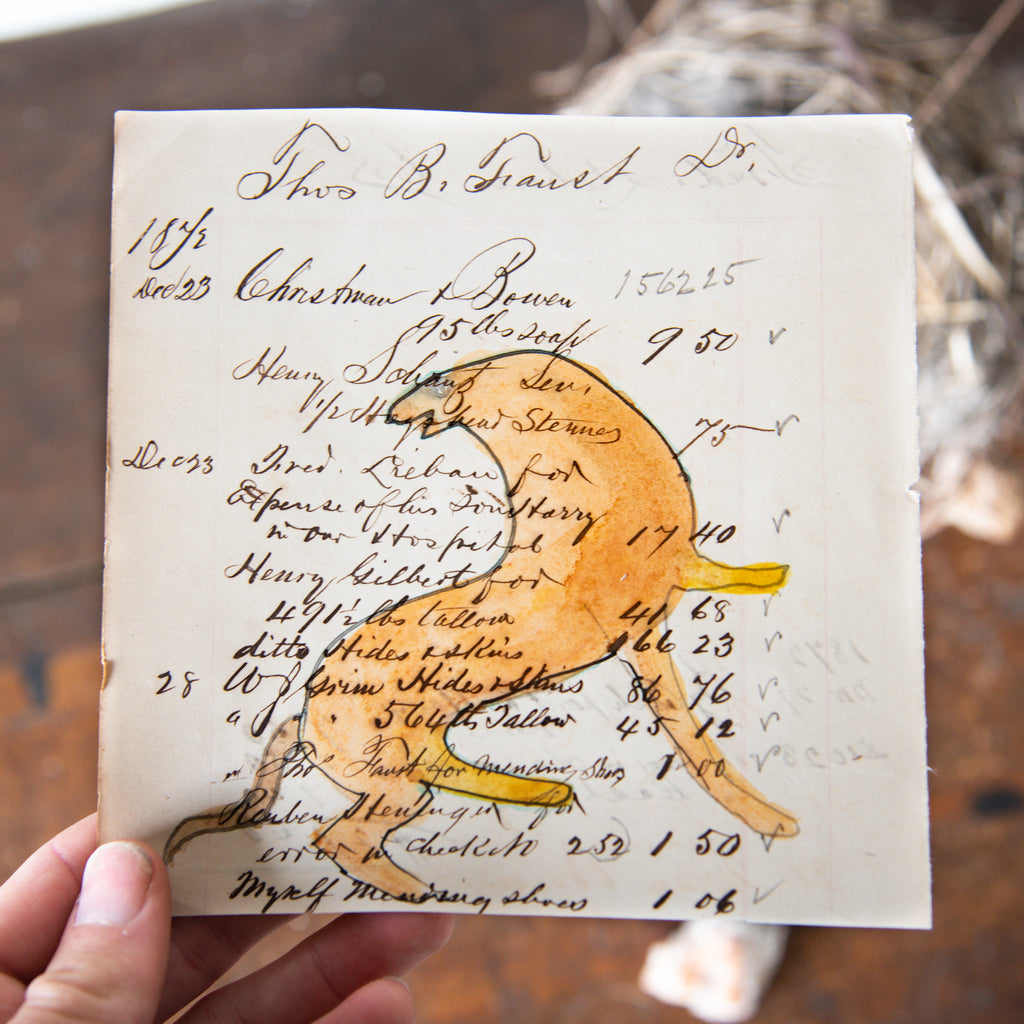 Thos B. Faust Dr,
1872
Dec 23 Christman & Bowen 156225
95 lbs soap 9 50 ✓
Henry Schantz Sen,
1/2 Hogshead 75 ✓
Dec 23 Fred. Lieban for
Expense of his Son Harry
in our Hospital 17 40 ✓
Henry Gilbert for
491 1/2 lbs tallow 41 68 ✓
ditto Hides & skins 166 23 ✓
28 Grim Hides & skins 86 76 ✓
" " " 564 lb Tallow 45 12 ✓
" Thos Faust for mending Shos 1 00 ✓
Reuben for
error in check No 252 1 50 ✓
Myself Mending shoes 1 06 ✓